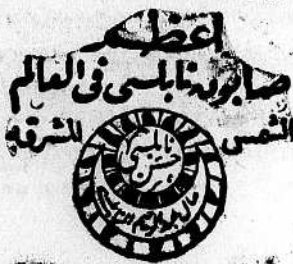 اعظم
صابون نابلسى فى العالم
الشمس المشرقه
نابلسى
حسن